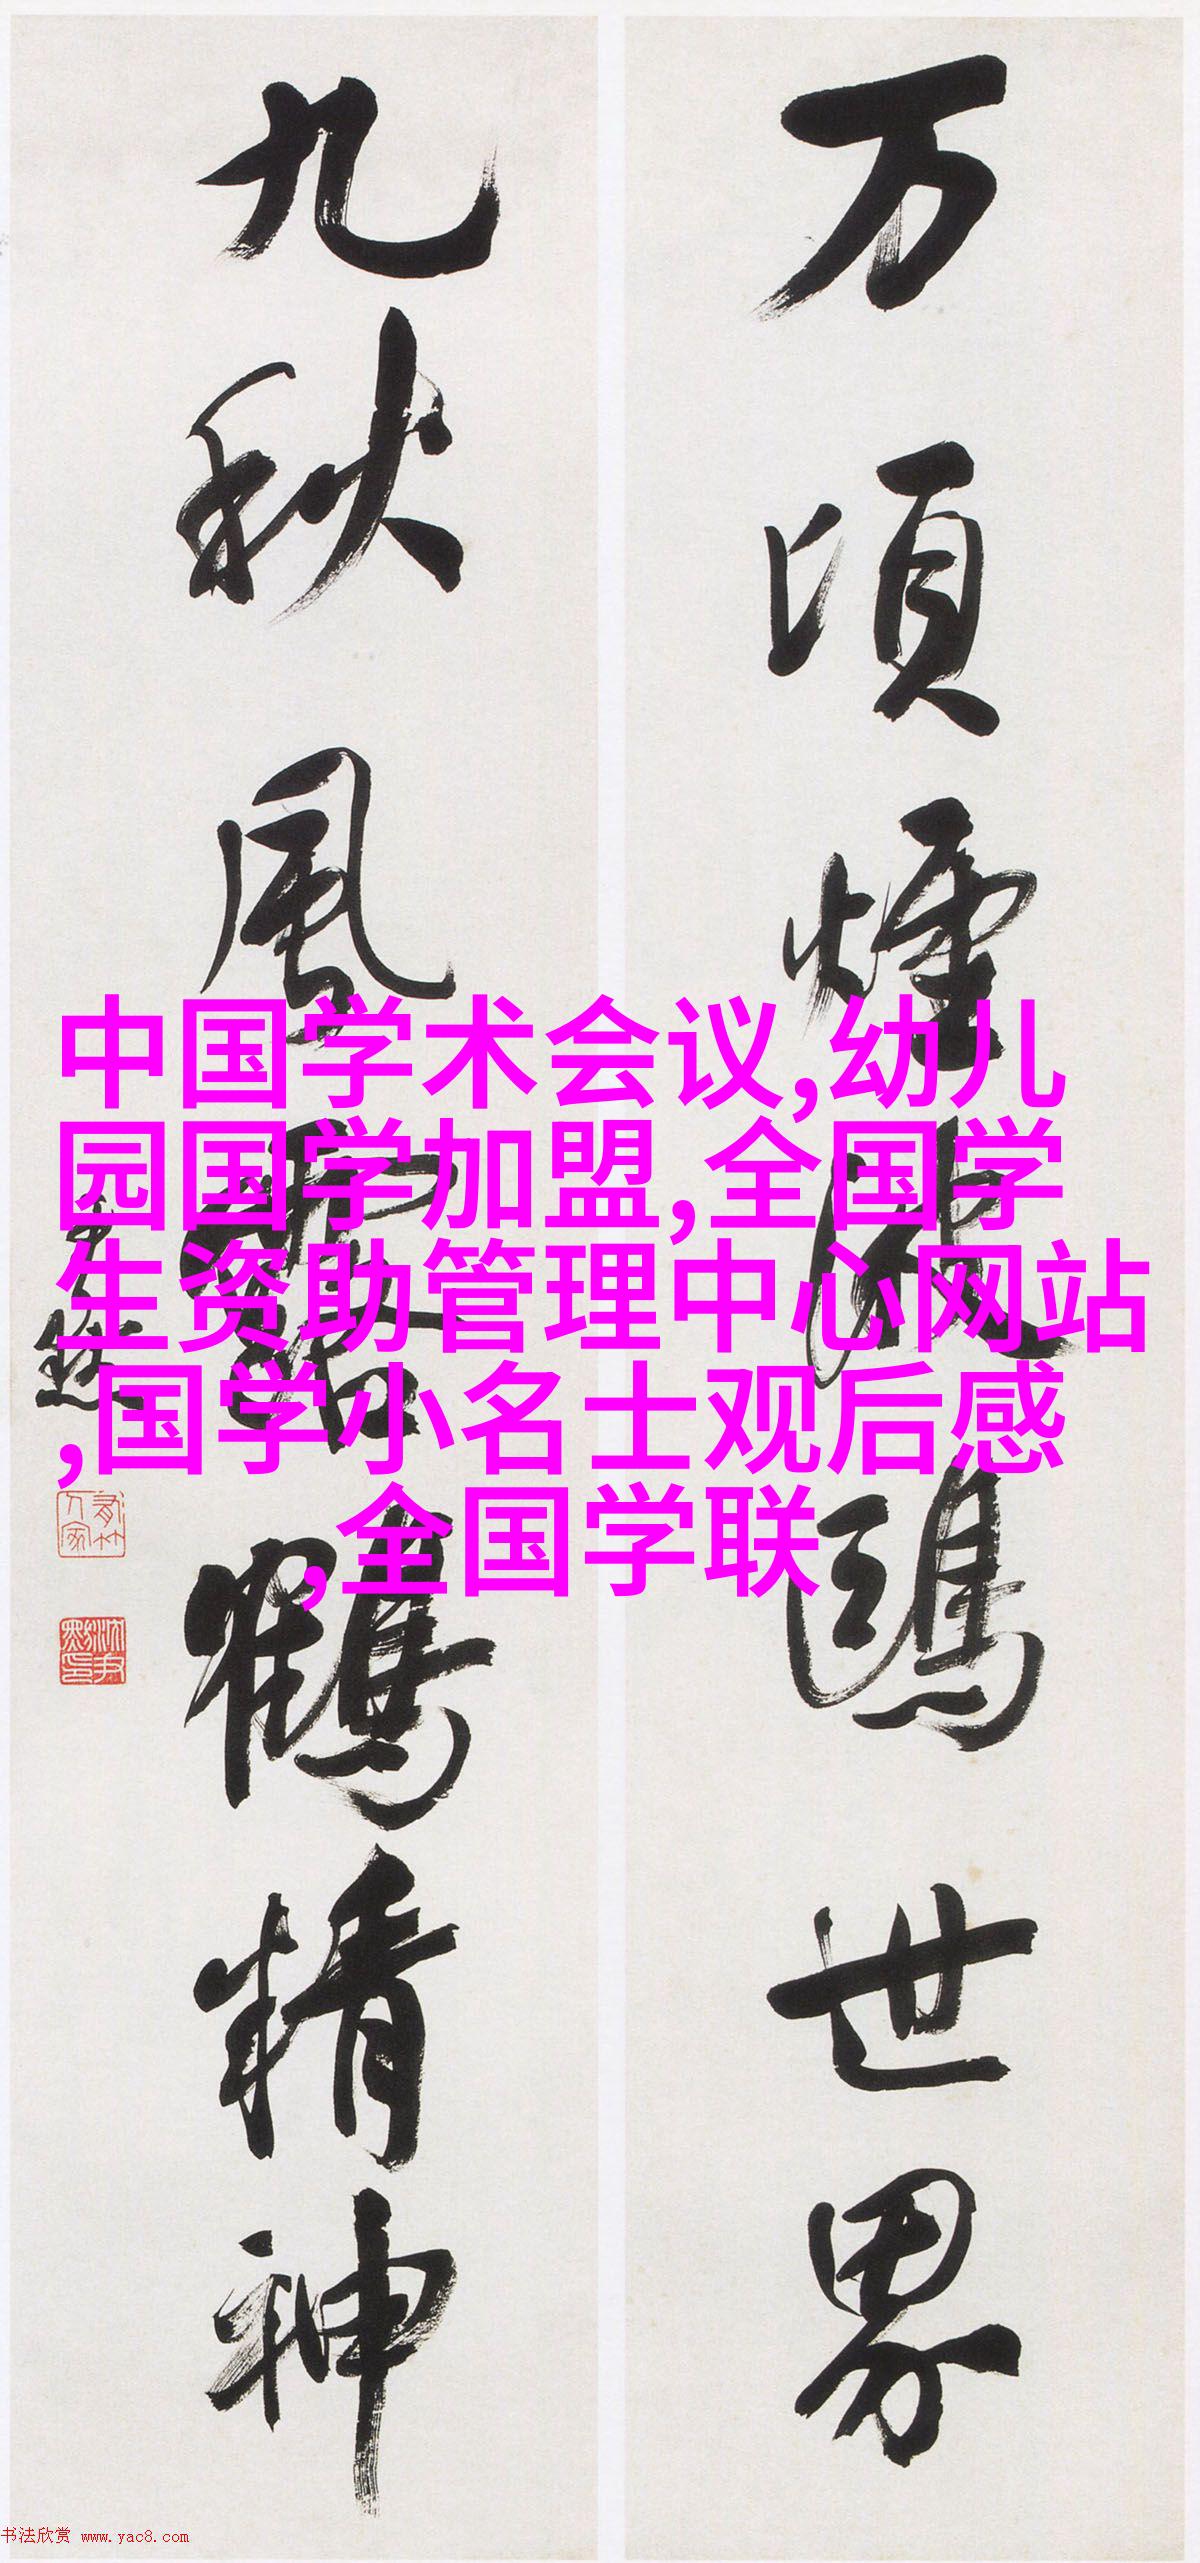 万頃煙波鷗世界
九秋風露鶴精神
尹默
沈尹默印
中国学术会议,幼儿
园国学加盟,全国学
生资助管理中心网站
,国学小名士观后感
,全国学联
书法欣赏 www.yac8.com